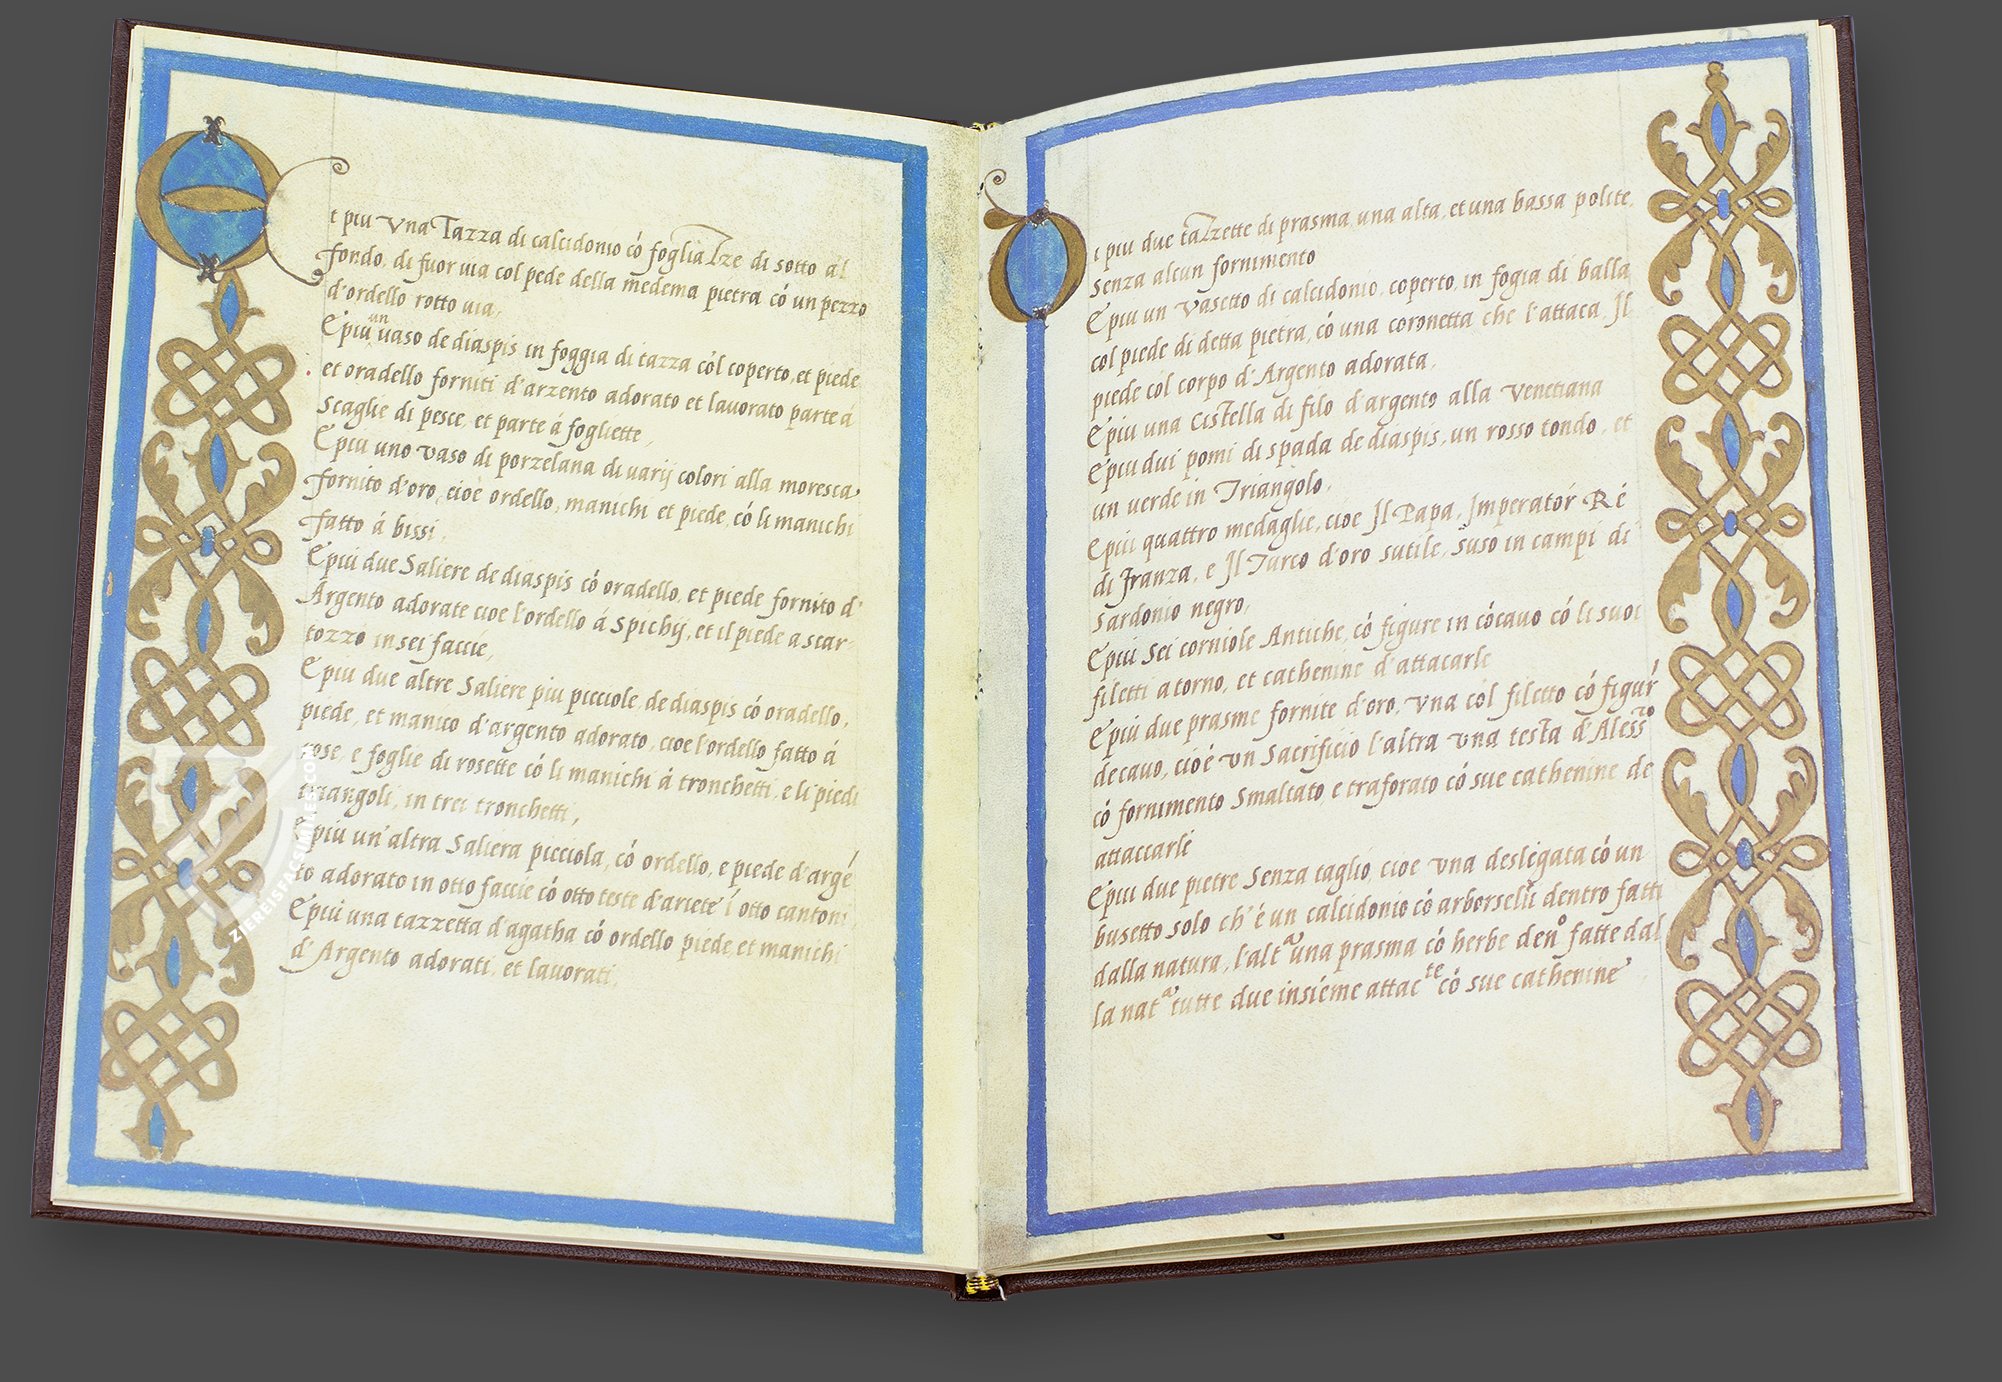 E t piu Una Tazza di calcidonio có fogliaTze di sotto al
fondo, di fuor uia col pede della medema pietra có un pezzo
d'ordello rotto uia,
E piu un uaso de diaspis in foggia di tazza col coperto, et piede
et oradello forniti d'arzento adorato et lauorato parte á
scaglie di pesce, et parte á fogliette,
E piu uno vaso di porzelana di uarij colori alla moresca
fornito d'oro, cioè ordello, manichi et piede, có li manichi
fatto á bissi,
E piu due Saliere de diaspis có oradello, et piede fornito d'
Argento adorate cioe l'ordello á Spichij, et il piede a scar-
tozzo in sei faccie,
E piu due altre Saliere piu picciole, de diaspis có oradello,
piede, et manico d'argento adorato, cioe l'ordello fatto á
rose, e foglie di rosette có li manichi á tronchetti, e li piedi
triangoli, in trei tronchetti,
E piu un'altra Saliera picciola, có ordello, e piede d'argé
to adorato in otto faccie có otto teste d'ariete i otto cantoni
E piu una tazzetta d'agatha có ordello piede, et manichi
d'Argento adorati, et lauorati,
D i piu due taTzette di prasma una alta, et una bassa polite,
Senza alcun fornimento
E piu un Vasetto di calcidonio, coperto, in fogia di balla
col piede di detta pietra, có una coronetta che l'attaca Il
piede col corpo d'Argento adorata,
E piu una Cistella di filo d'argento alla Venetiana
E piu dui pomi di spada de diaspis, un rosso tondo, et
un uerde in Triangolo,
E piu quattro medaglie, cioe Il Papa, Imperatór Ré
di Franza, e Il Turco d'oro sutile, suso in campi di
Sardonio negro,
E piu Sei corniole Antiche, có figure in cócauo có li suoi
filetti atorno, et cathenine d'attacarle
E piu due prasme fornite d'oro, una col filetto có figur
de cauo, cioé un Sacrificio l'altra una testa d'Aless.ro
có fornimento Smaltato, e traforato có sue cathenine de
attaccarle
E piu due pietre Senza taglio, cioe una desligata có un
busetto solo ch'é un calcidonio có arborselli dentro fatti
dalla natura, l'altra una prasma có herbe deno fatte dal
la nata tutte due insiéme attacte có sue cathenine
ZIEREISFACSIMILES.COM